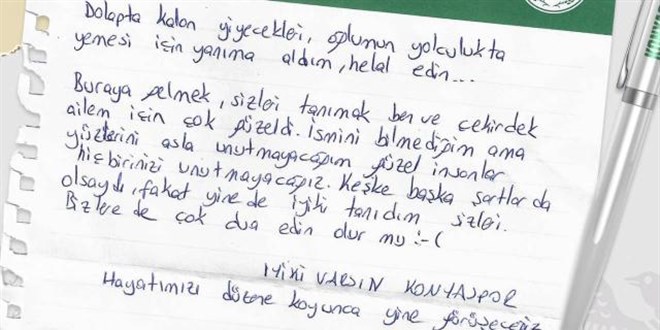 Dolapta kalan yiyecekleri, oğlumun yolculukta
yemesi için yanıma aldım, helal edin...
Buraya gelmek, sizleri tanımak ben ve çekirdek
ailem için çok güzeldi. İsmini bilmediğim ama
yüzlerini asla unutmayacağım güzel insanlar
hiçbirinizi unutmayacağız. Keşke başka şartlarda
olsaydı, fakat yine de iyiki tanıdım sizleri.
Bizlere de çok dua edin olur mu :-(
İYİKİ VARSIN KONYASPOR
Hayatımızı düzene koyunca yine görüşeceğiz